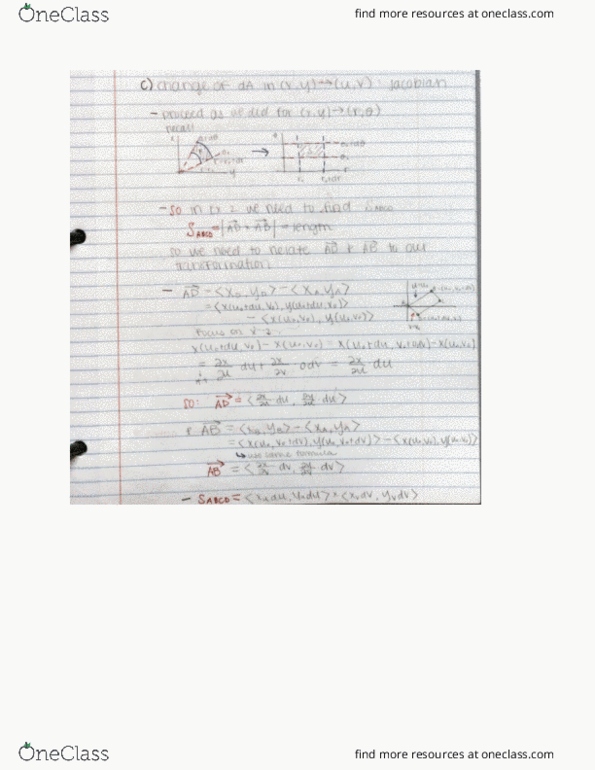 OneClass
find more resources at oneclass.com
c) change of dA in (x,y)→(u,v): Jacobian
- proceed as we did for (x,y)→(r,θ)
recall
- So in Ex 2 we need to find S_ABCD
S_ABCD = |AD × AB| = length
so we need to relate AD & AB to our
transformation
- AD = <x_D, y_D> - <x_A, y_A>
= <x(u₀+du, v₀), y(u₀+du, v₀)>
- <x(u₀, v₀), y(u₀, v₀)>
x(u₀+du, v₀) - x(u₀, v₀) = x(u₀+du, v₀+0dv) - x(u₀, v₀)
= ∂x/∂u du + ∂x/∂v 0dv = ∂x/∂u du
so: AD = < du, du>
& AB = <x_B, y_B> - <x_A, y_A>
= <x(u₀, v₀+dv), y(u₀, v₀+dv)> - <x(u₀, v₀), y(u₀, v₀)>
↳ use same formula
AB = < dv, dv>
- S_ABCD = <x_u du, y_u du> × <x_v dv, y_v dv>
OneClass
find more resources at oneclass.com